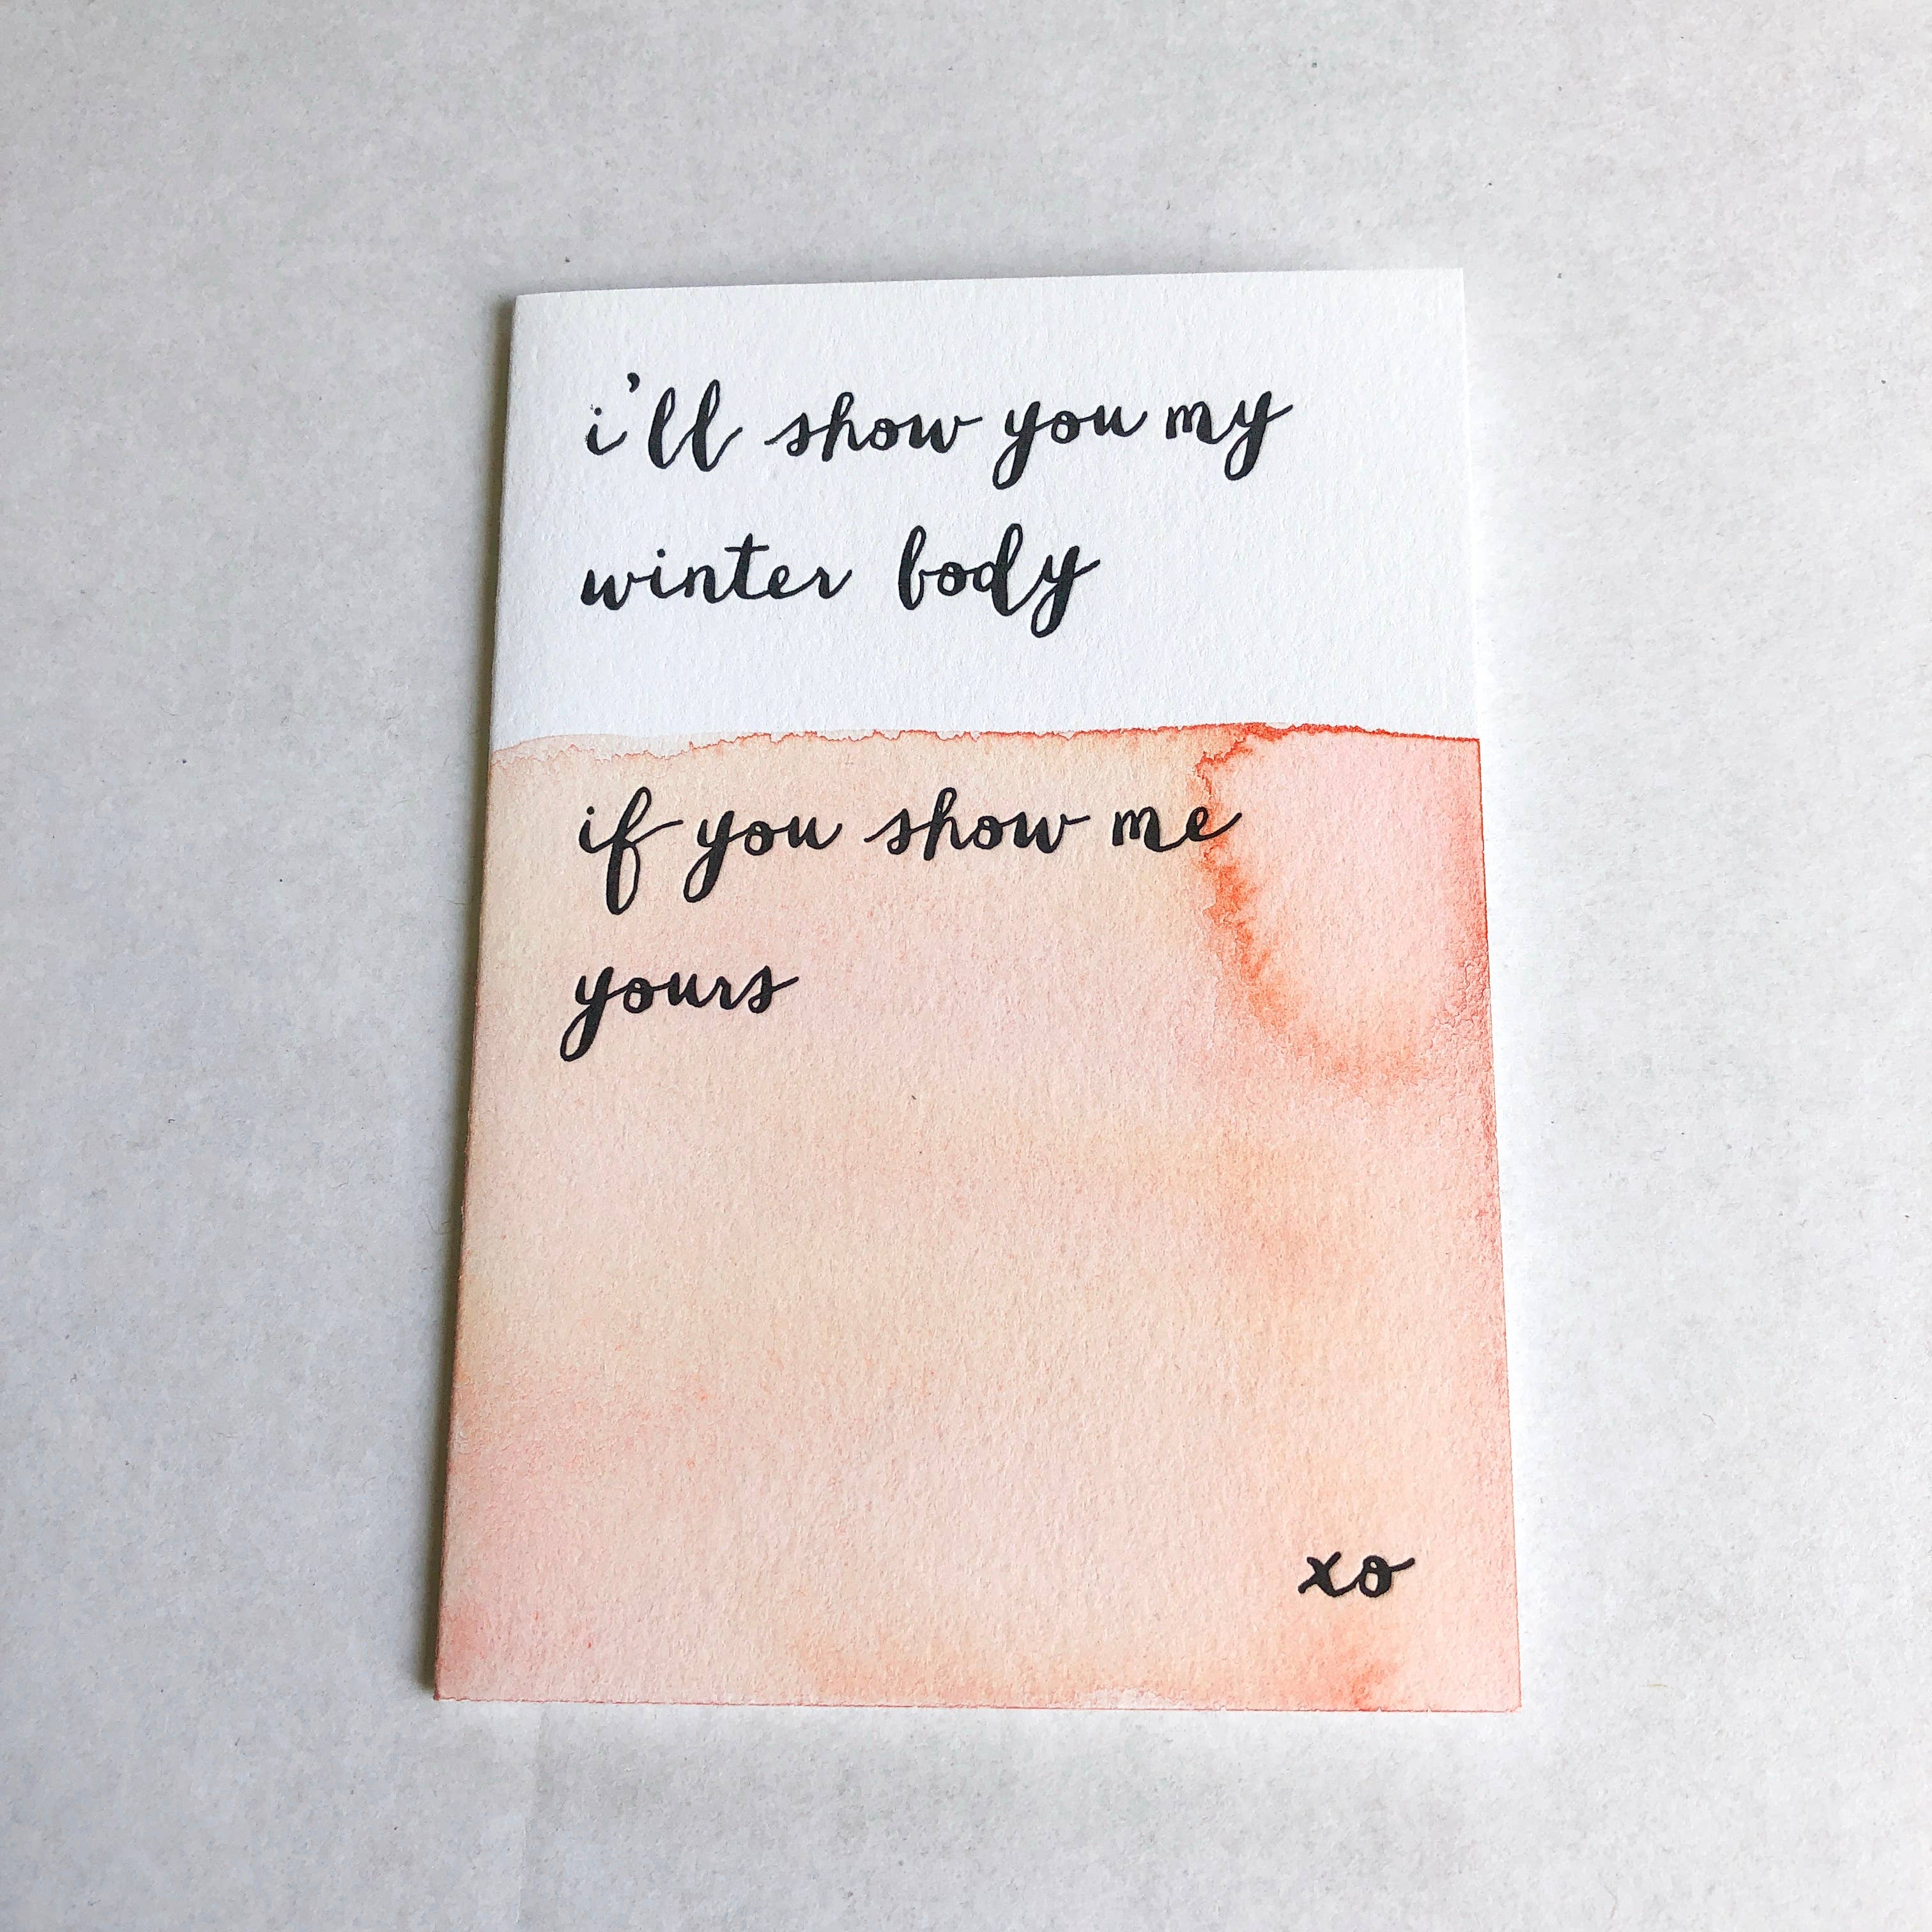 i'll show you my
winter body
if you show me
yours
xo